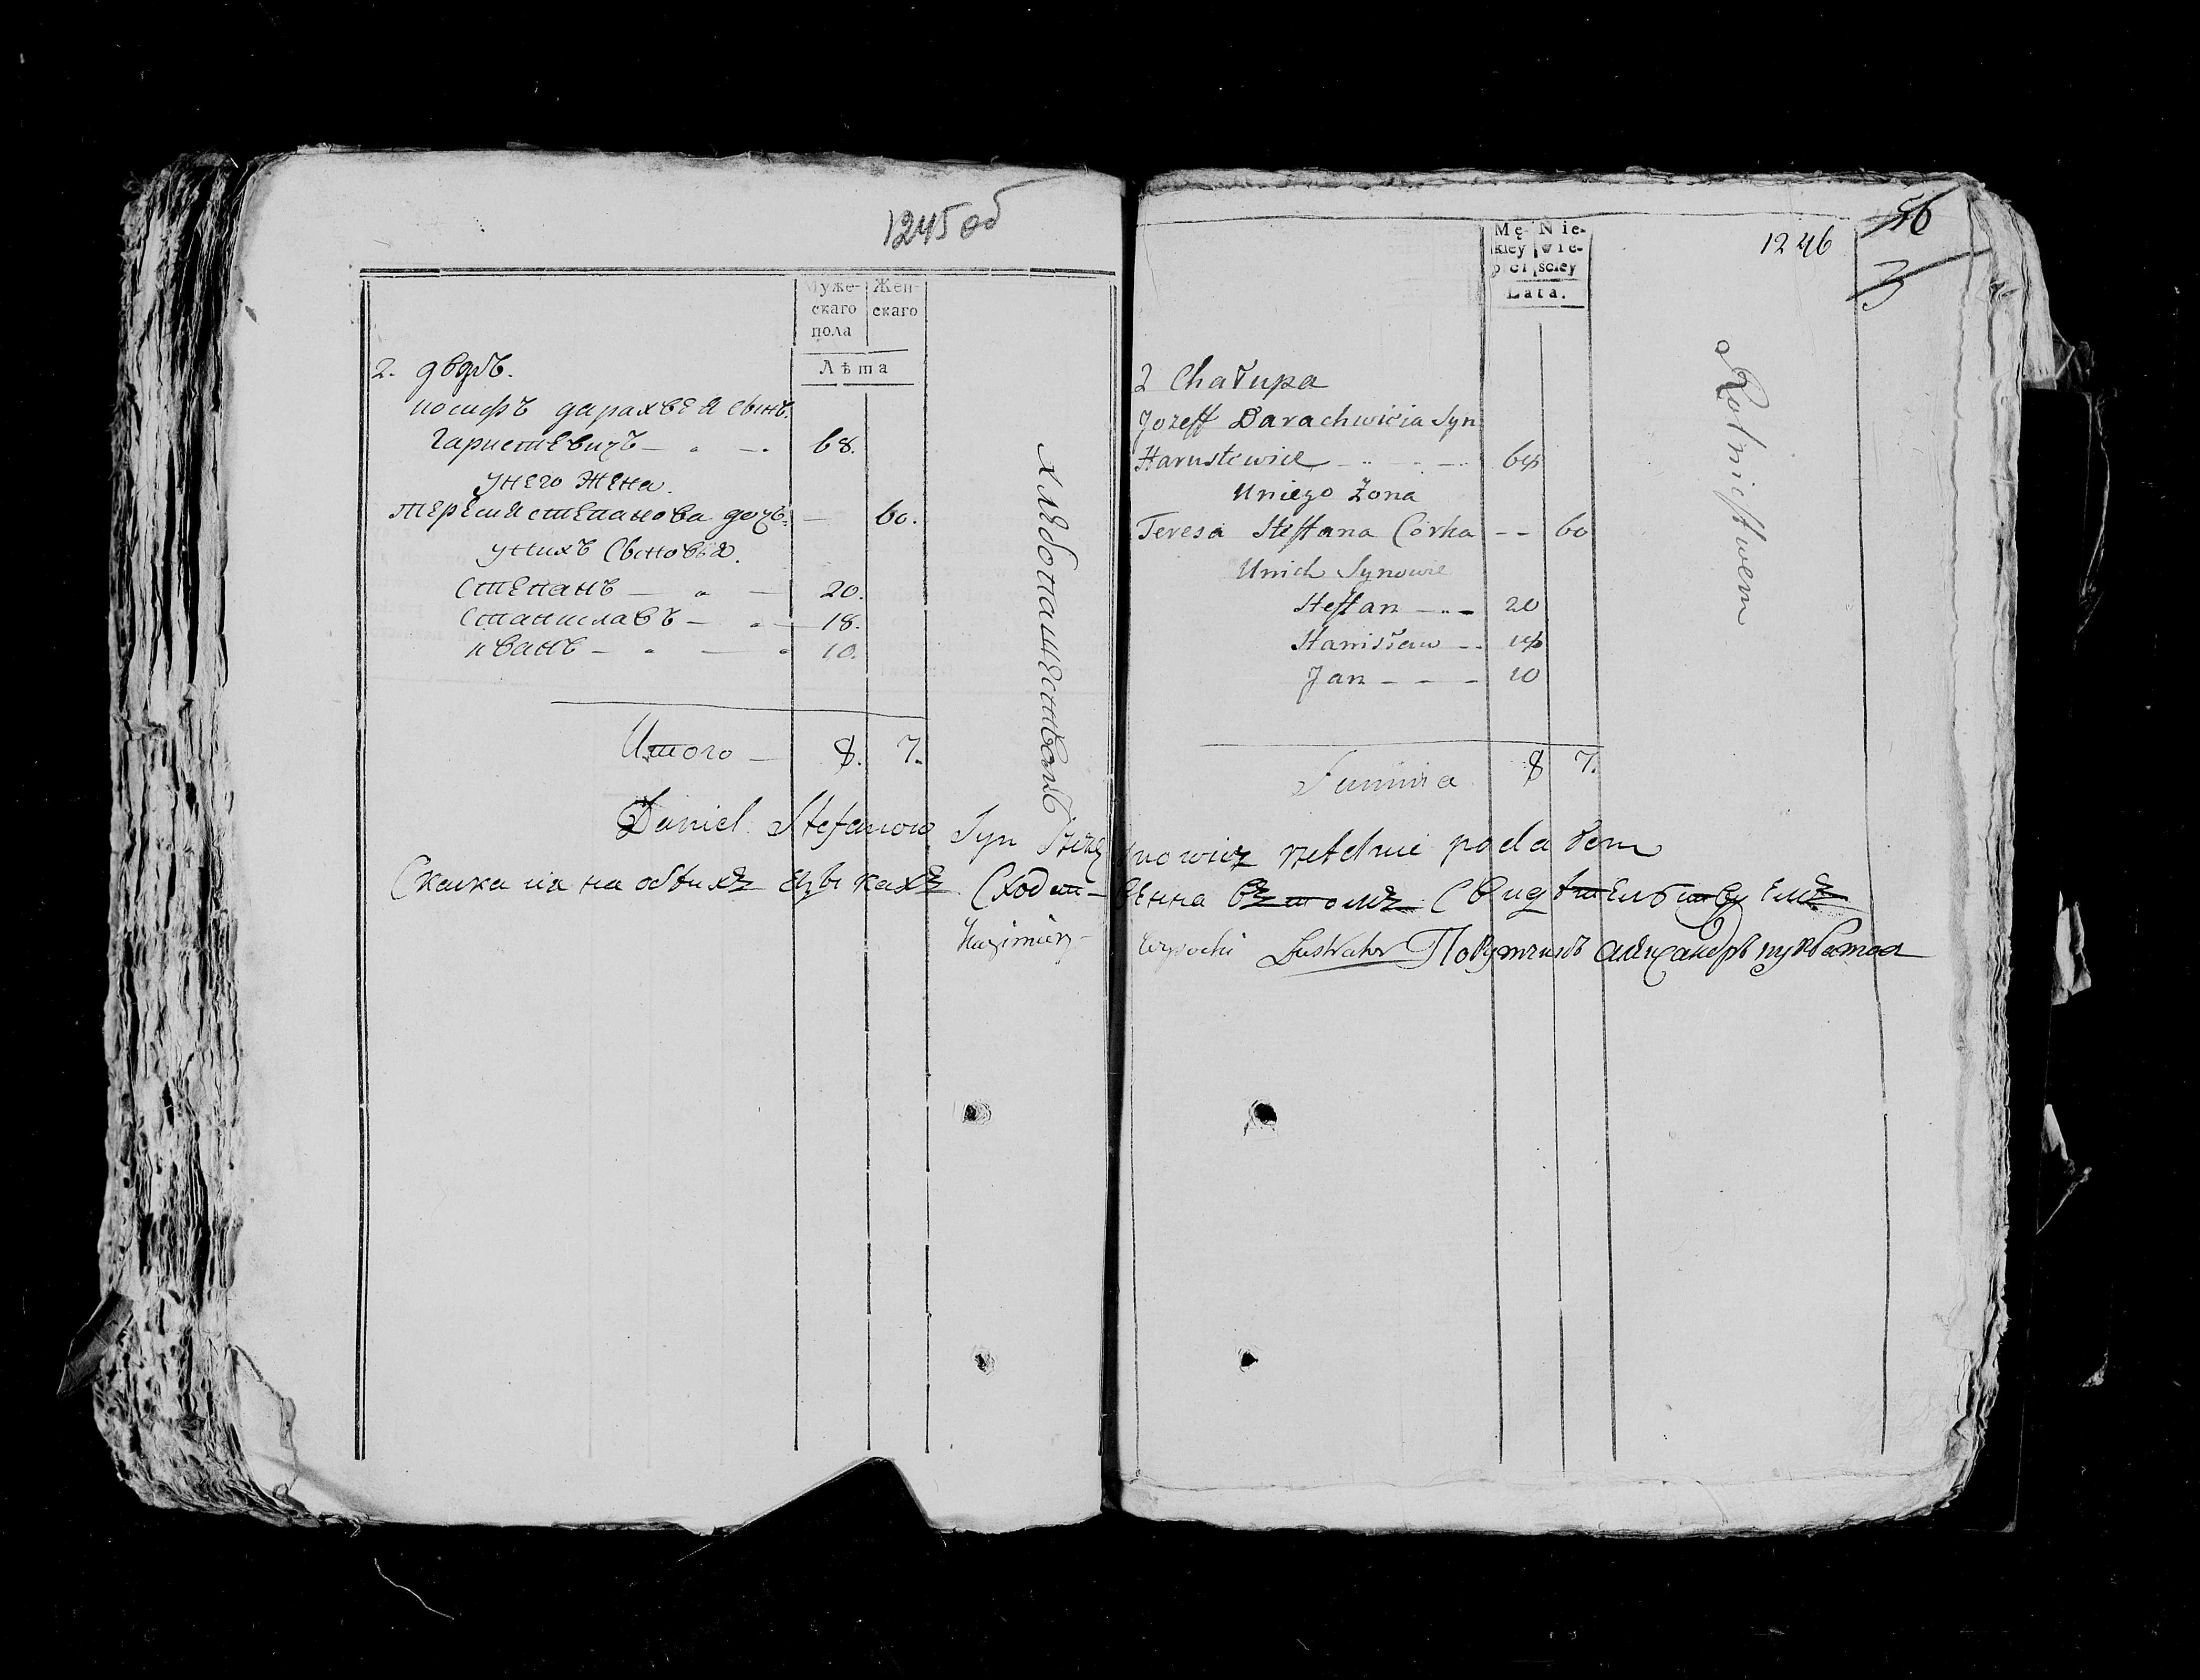 1245 об
Муже-
скаго
пола
Жен-
скаго
Лѣта
2. дворъ.
иосифъ дарахвея сынъ
Гаристевичъ — 68.
унего жена
тересия степанова дочь — 60.
унихъ сыновья.
степанъ — 20.
станиславъ — 18.
иванъ — 10.
Итого — 8. 7.
хлѣбопашествомъ
1246
56
3
Mę-
kiey
płci
Nie-
wie-
sciey
Lata.
2 Chałupa
Jozeff Darachwieia Syn
Harustewicz 68
Uniego Żona
Teresa Steffana Córka -- 60
Unich Synowie
Steffan 20
Stanisław 18
Jan 10
Summa 8 7.
Rolnictwem
Daniel Stefanow Syn rzetelnie podałem
Скаска сия на обѣихъ языкахъ Сходт-венна въ томъ Свидѣтельствуемъ
Kazimierz Wysocki Lustrator Порутчикъ Александръ